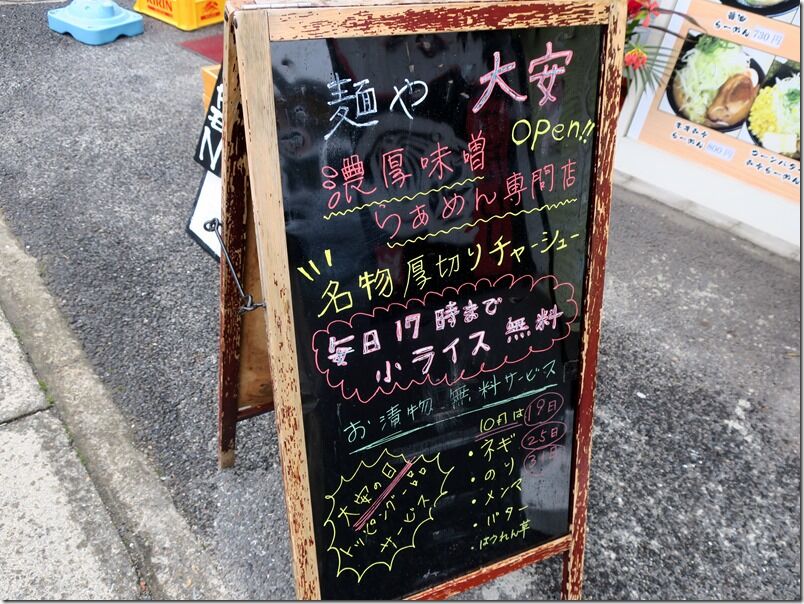 麺や 大安
OPen!!
濃厚味噌
らぁめん専門店
名物厚切りチャーシュー
毎日17時まで
小ライス 無料
お漬物 無料サービス
大安の日
トッピング一品
サービス
10月は 19日
25日
31日
・ネギ
・のり
・メンマ
・バター
・ほうれん草
らーめん 730円
らーめん 800円
KIRIN